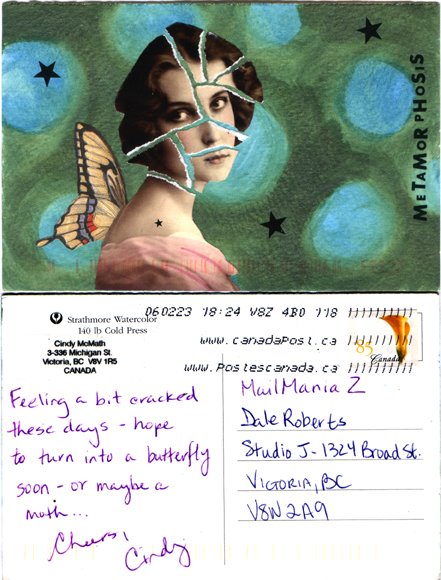 METAMORPHOSIS
060223 18:24 W8Z 4B0 118
Strathmore Watercolor
140 lb Cold Press
www.canadapost.ca
Cindy McMath
3-336 Michigan St.
Victoria, BC V8V 1R5
CANADA
85
Canada
www.postescanada.ca
Feeling a bit cracked
these days - hope
to turn into a butterfly
soon - or maybe a
moth...
Cheers,
Cindy
MailMania 2
Dale Roberts
Studio J - 1324 Broad St.
Victoria, BC
V8W 2A9